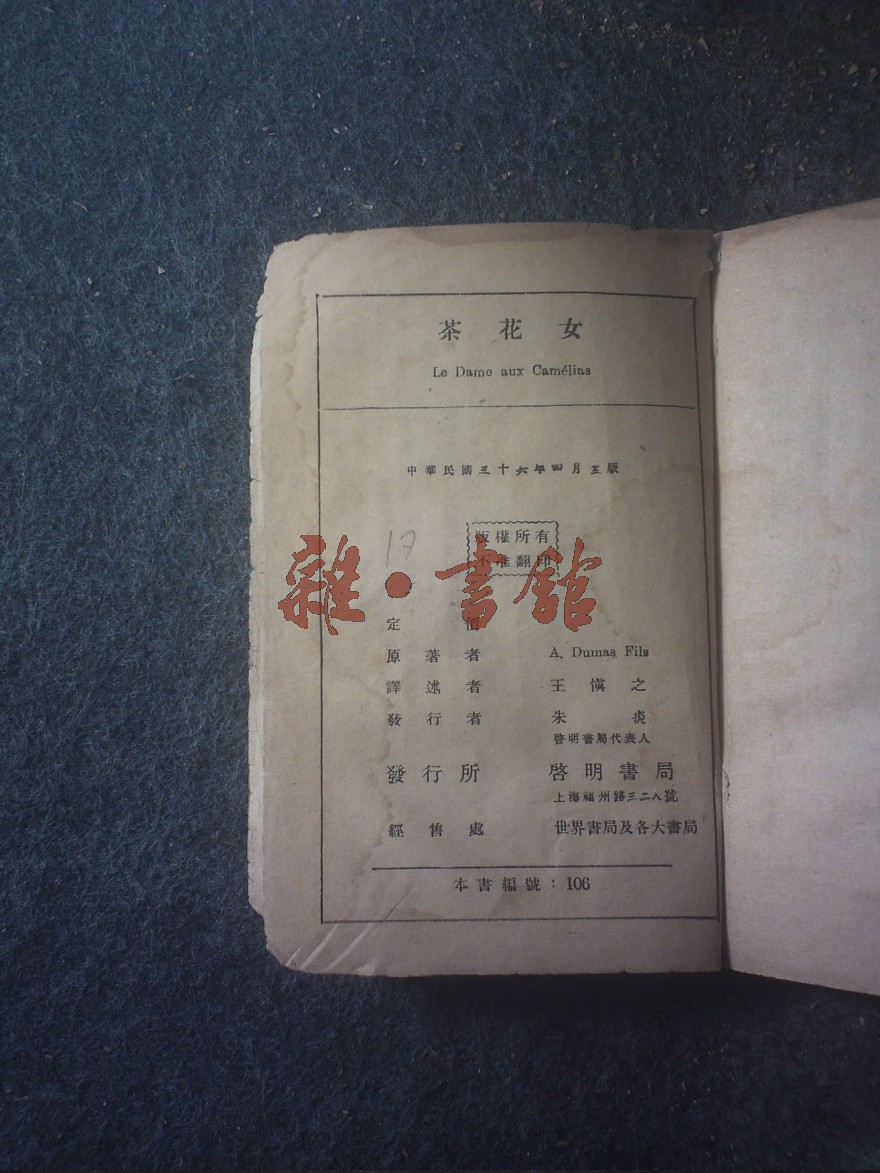 茶花女
Le Dame aux Camélias
中華民國三十六年四月三版
版權所有
不准翻印
17
雜·書館
定價
原著者 A. Dumas Fils
譯述者 王愼之
發行者 朱炎
啓明書局代表人
發行所 啓明書局
上海福州路三二八號
經售處 世界書局及各大書局
本書編號：106